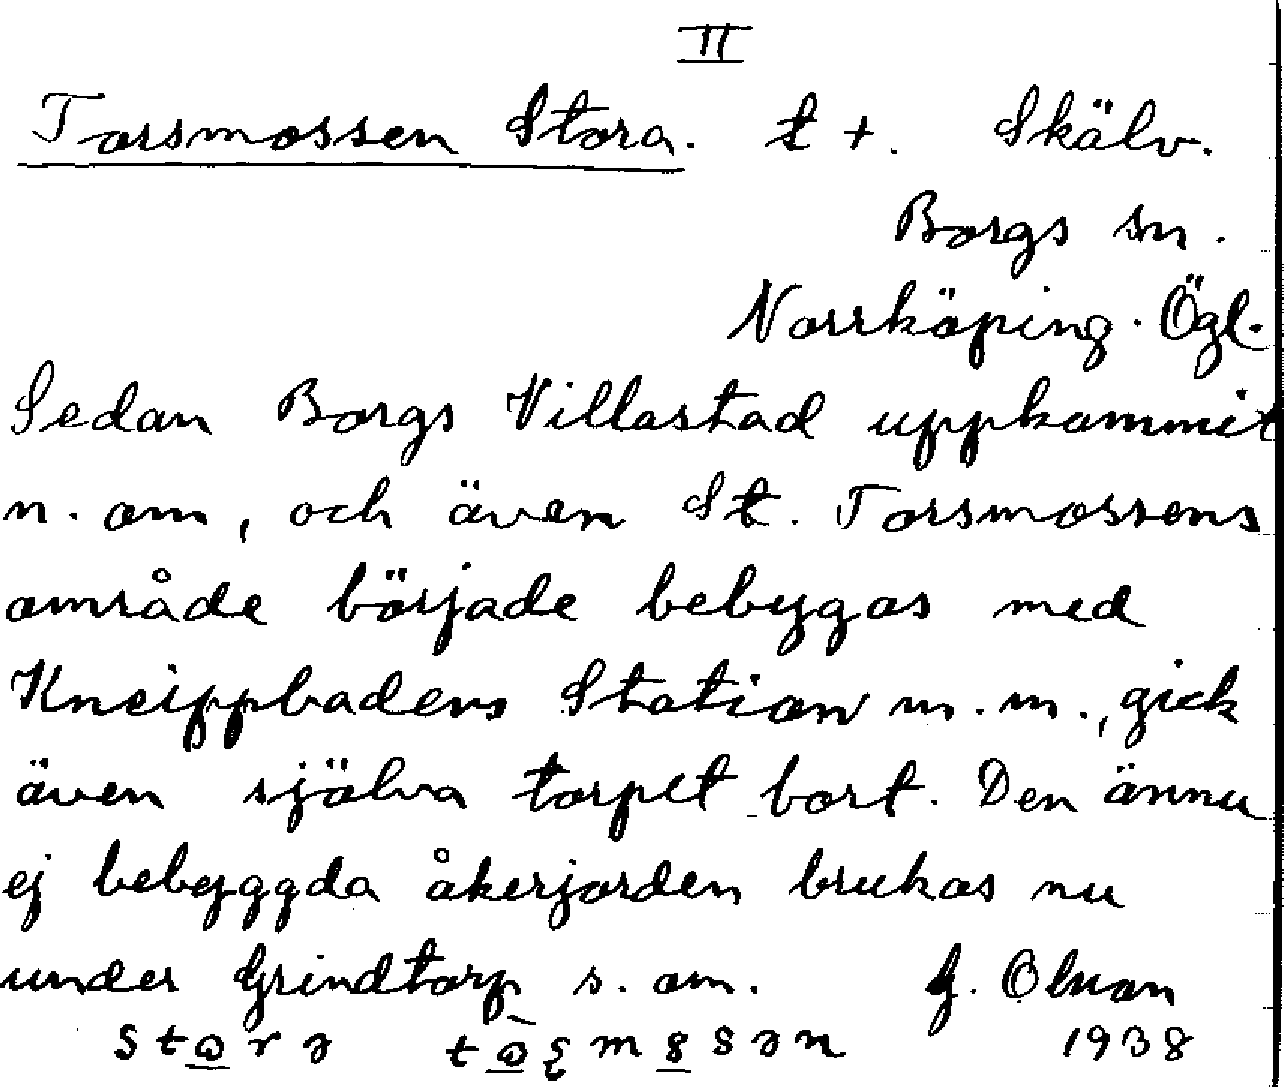 II
Torsmossen Stora. t +. Skälv.
Borgs sn.
Norrköping. Ögl.
Sedan Borgs Villastad uppkommit
n. om, och även St. Torsmossens
område började bebygas med
Kneippbadens Station m. m., gick
även själva torpet bort. Den ännu
ej bebyggda åkerjorden brukas nu
under Grindtorp s. om. G. Olsson
1938